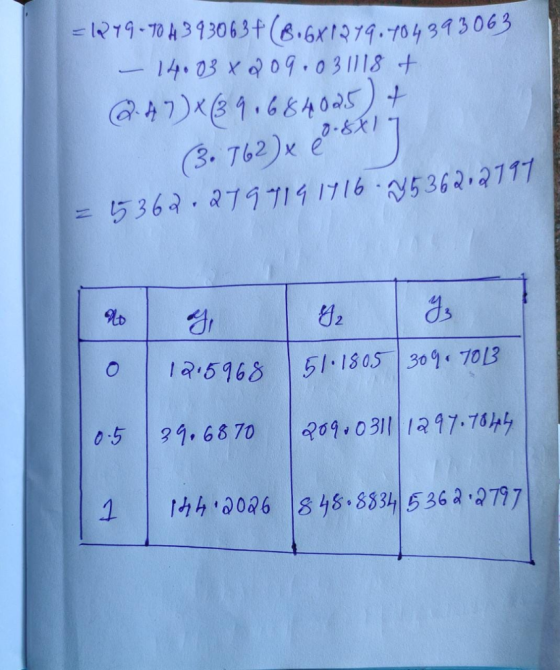 =1279.704393063+(8.6x1279.704393063
- 14.03 x 209.031118 +
(2.47)x(39.684025) +
(3.762)x e^0.8x1]
= 5362.2797191716 . ≈5362.2797
x0 y1 y2 y3
0 12.5968 51.1805 309.7013
0.5 39.6870 209.0311 1297.7044
1 144.2026 848.8834 5362.2797